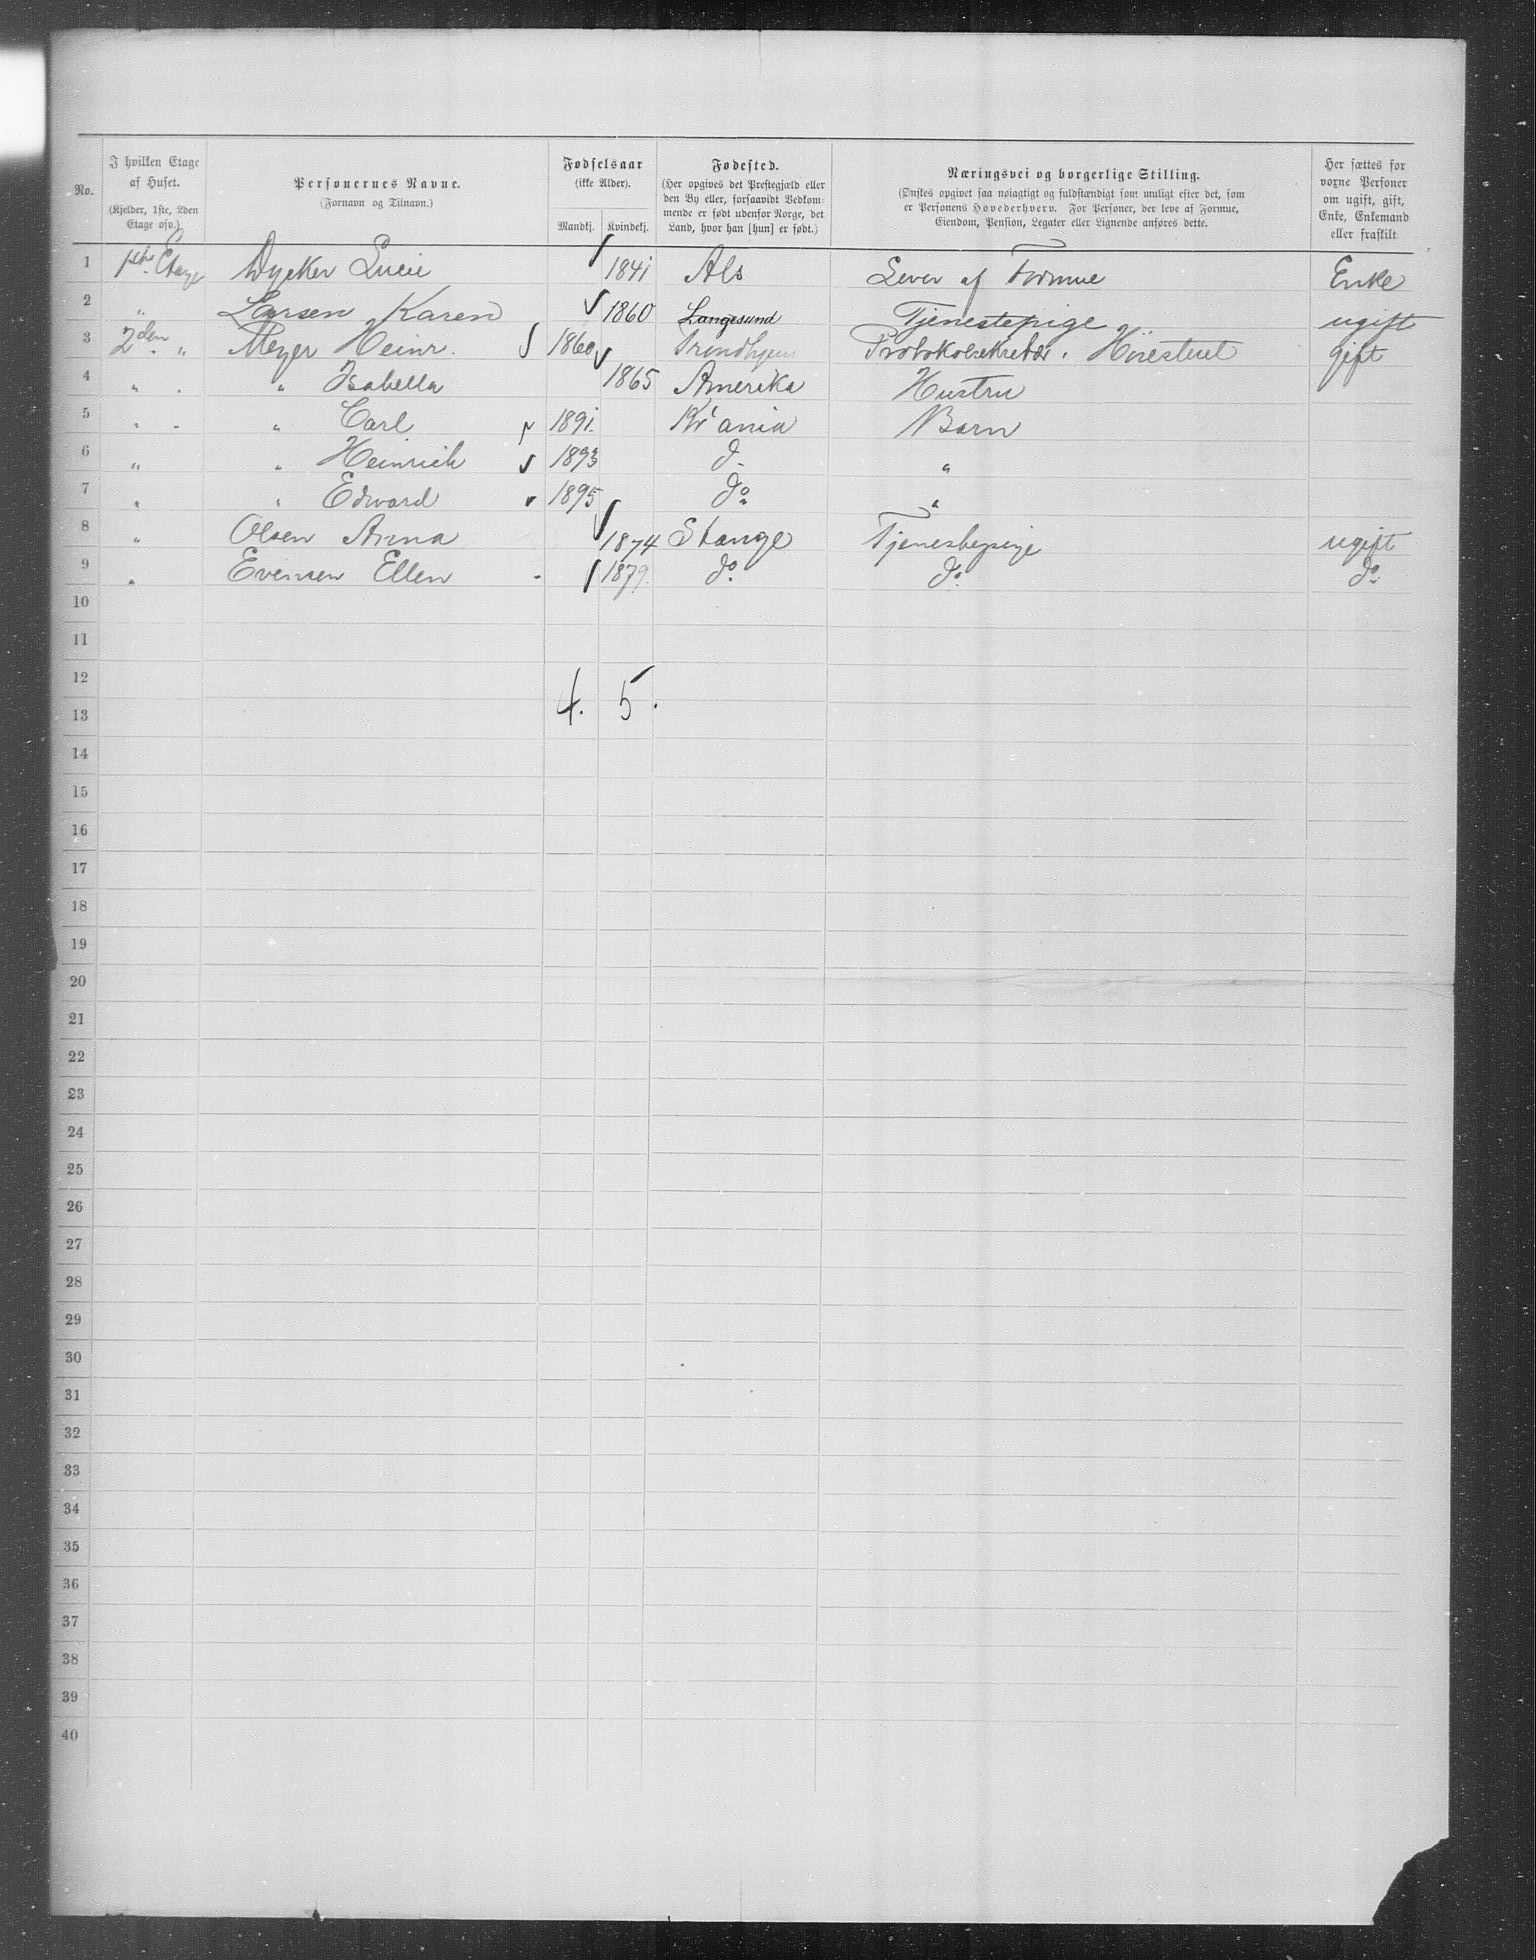 No.
I hvilken Etage af Huset.
(Kjelder, 1ste, 2den Etage osv.)
Personernes Navne.
(Fornavn og Tilnavn.)
Fødselsaar
(ikke Alder).
Mandkj. Kvindekj.
Fødested.
(Her opgives det Præstegjæld eller
den By eller, forsaavidt Vedkom-
mende er født udenfor Norge, det
Land, hvor han [hun] er født.)
Næringsvei og borgerlige Stilling.
(Ønskes opgivet saa nøiagtigt og fuldstændigt som muligt efter det, som
er Personens Hovederhverv. For Personer, der leve af Formue,
Eiendom, Pension, Legater eller Lignende anføres dette.
Her sættes for
voxne Personer
om ugift, gift,
Enke, Enkemand
eller fraskilt
1 1ste Etage Dycker Lucie 1841 Als Lever af Formue Enke
2 " Larsen Karen 1860 Langesund Tjenestepige ugift
3 2den " Meyer Heinr. 1860 Trondhjem Protokolsekretær. Høiesteret gift
4 " " Isabella 1865 Amerika Hustru
5 " " Carl 1891 Kr'ania Barn
6 " " Heinrich 1893 do "
7 " " Edward 1895 do "
8 " Olsen Anna 1874 Stange Tjenestepige ugift
9 " Evensen Ellen 1879 do do do
10
11
12
4. 5.
13
14
15
16
17
18
19
20
21
22
23
24
25
26
27
28
29
30
31
32
33
34
35
36
37
38
39
40